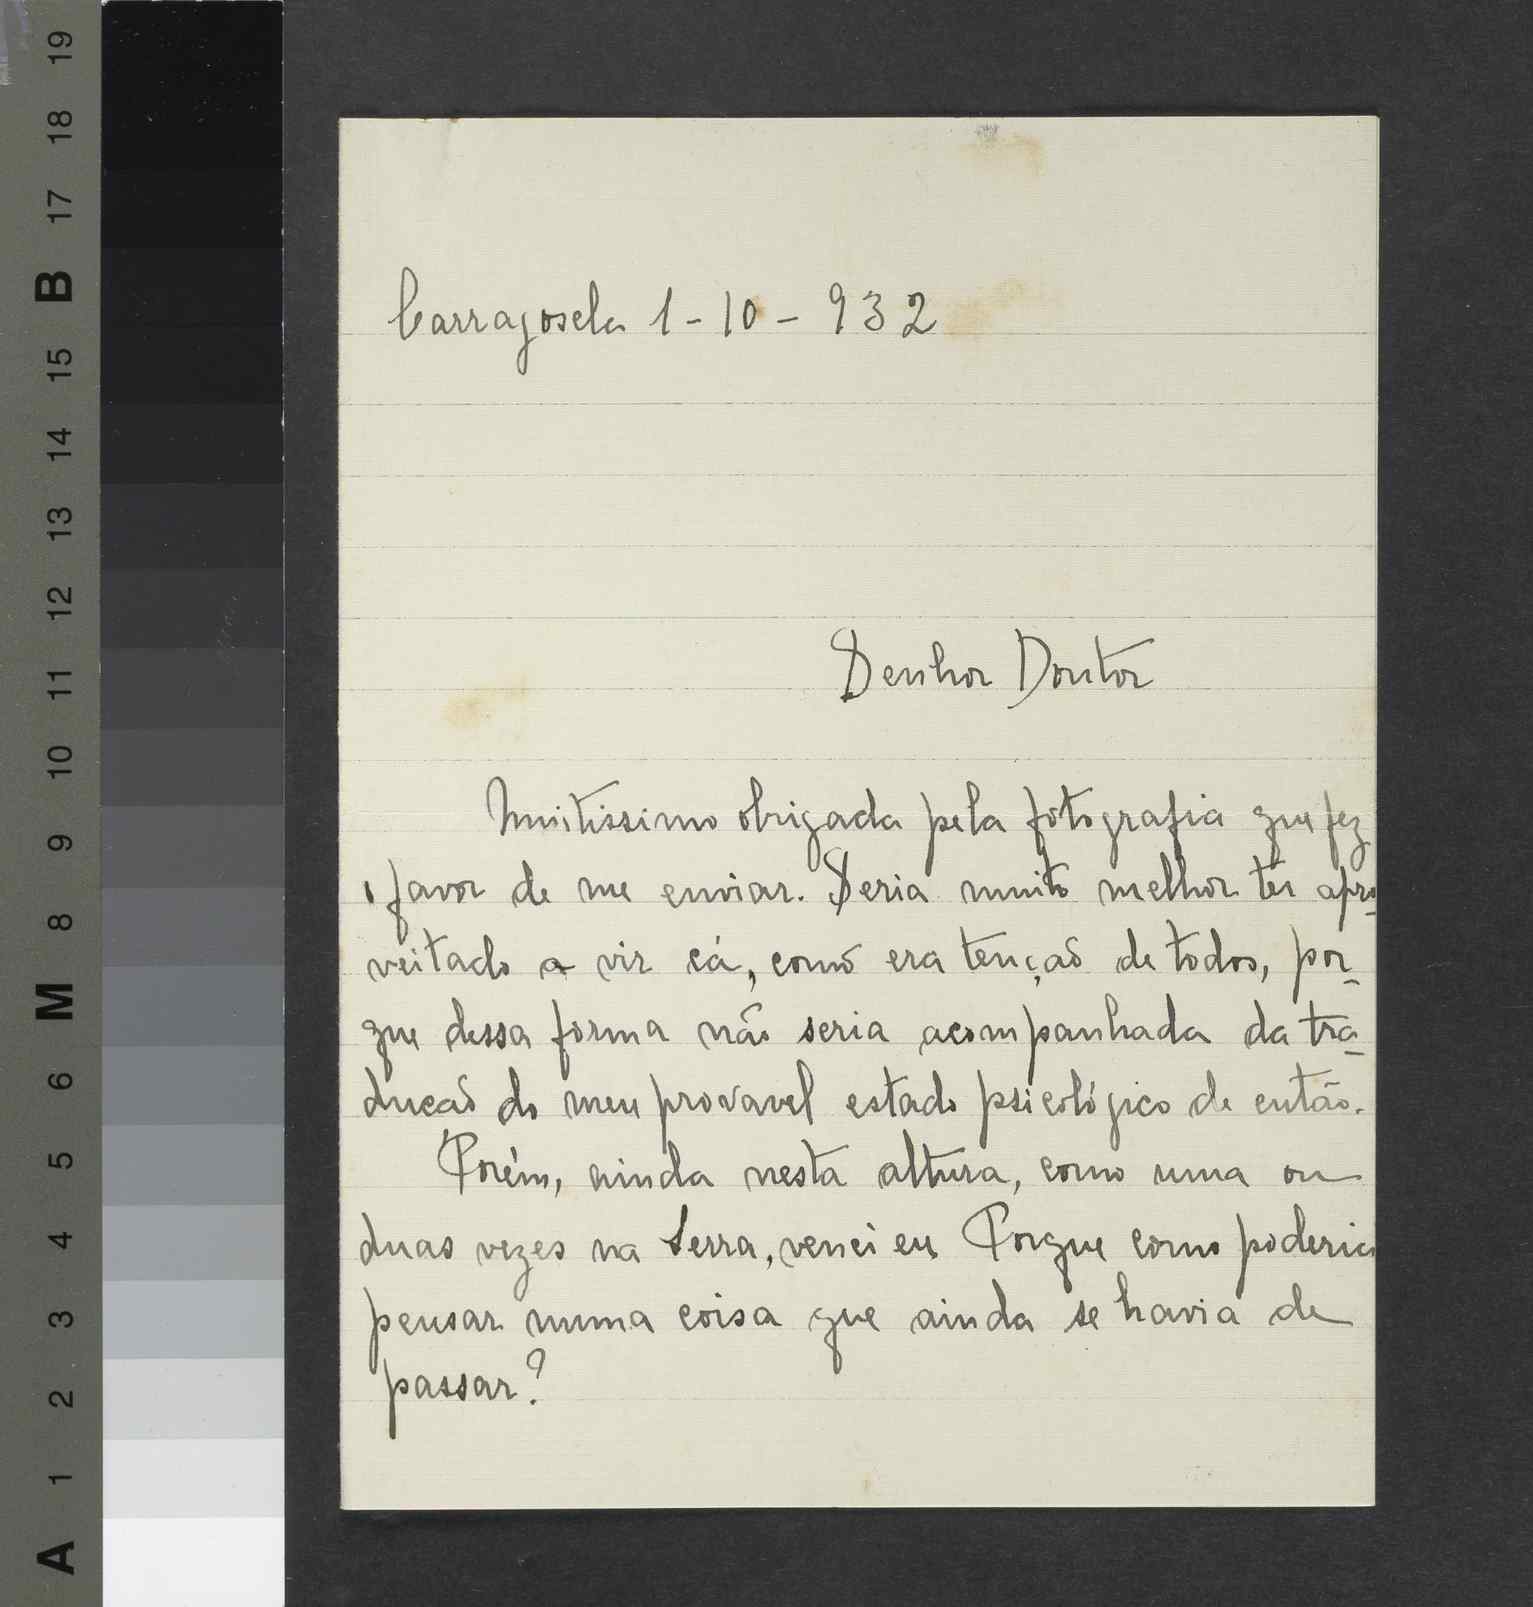 19
18
17
B
15
14
13
12
11
10
9
8
M
6
5
4
3
2
1
A
Carragosela 1-10-932
Senhor Doutor
Muitissimo obrigada pela fotografia que fez
o favor de me enviar. Seria muito melhor ter apro-
veitado a vir cá, como era tenção de todos, por-
que dessa forma não seria acompanhada da tra-
ducão do meu provavel estado psicológico de então.
Porém, ainda nesta altura, como uma ou
duas vezes na Serra, venci eu Porque como poderia
pensar numa coisa que ainda se havia de
passar?